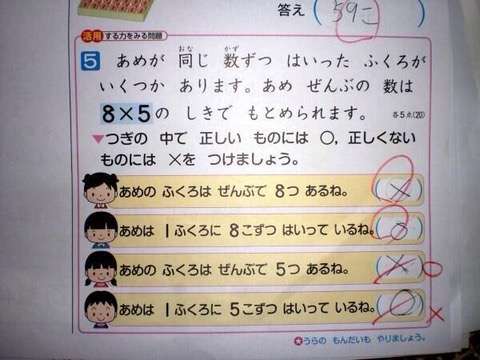 答え (59こ)
活用する力をみる問題
5 あめが 同じ 数ずつ はいった ふくろが
おな かず
いくつか あります。あめ ぜんぶの 数は
8×5の しきで もとめられます。 各5点(20)
▼つぎの 中で 正しい ものには ○, 正しくない
ものには ×を つけましょう。
あめの ふくろは ぜんぶで 8つ あるね。 (×)
あめは 1ふくろに 8こずつ はいって いるね。 (○)
あめの ふくろは ぜんぶで 5つ あるね。 (×) ○
あめは 1ふくろに 5こずつ はいって いるね。 (○) ×
★うらの もんだいも やりましょう。